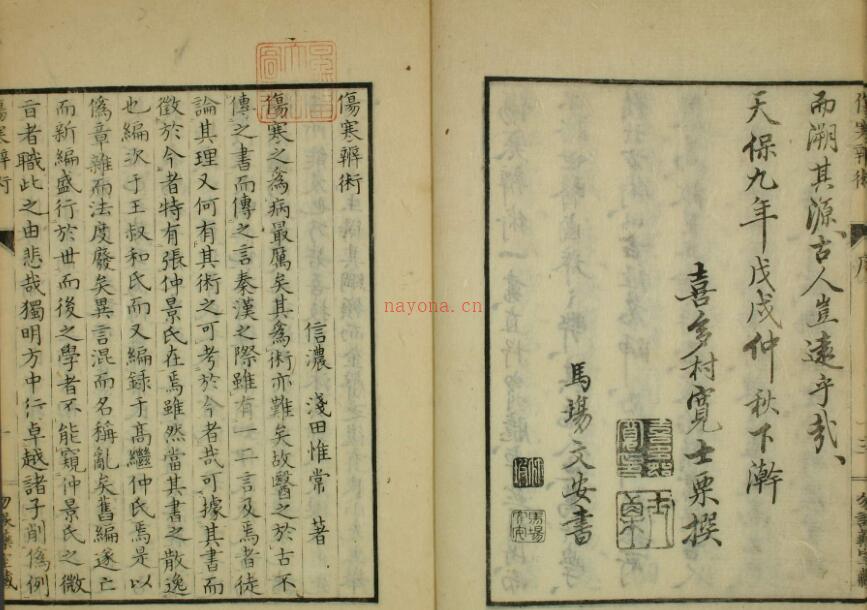 而溯其源、古人豈遠乎哉、
天保九年戊戌仲秋下澣
喜多村寬士栗撰
馬場文安書
傷寒辨術
信濃 淺田惟常 著
傷寒之爲病最厲矣其爲術亦難矣故醫之於古不
傳之書而傳之言秦漢之際雖有一二言及焉者徒
論其理又何有其術之可考於今者哉可據其書而
徵於今者特有張仲景氏在焉雖然當其書之散逸
也編次于王叔和氏而又編録于高繼仲氏焉是以
僞章雜而法度廢矣異言混而名稱亂矣舊編遂亡
而新編盛行於世而後之學者不能窺仲景氏之微
旨者職此之由悲哉獨明方中行卓越諸子削僞例
傷寒辨術
nayona.cn